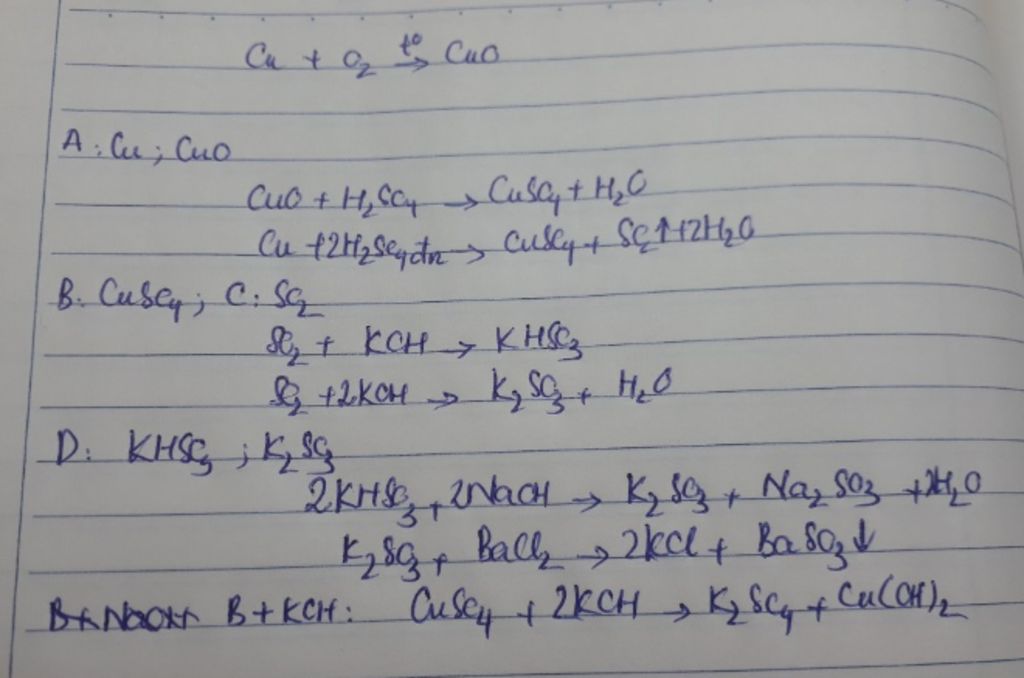 Cu + O₂ t°→ CuO
A: Cu; CuO
CuO + H₂SO₄ → CuSO₄ + H₂O
Cu + 2H₂SO₄ đn → CuSO₄ + SO₂↑ + 2H₂O
B: CuSO₄; C: SO₂
SO₂ + KOH → KHSO₃
SO₂ + 2KOH → K₂SO₃ + H₂O
D: KHSO₃; K₂SO₃
2KHSO₃ + 2NaOH → K₂SO₃ + Na₂SO₃ + 2H₂O
K₂SO₃ + BaCl₂ → 2KCl + BaSO₃↓
B + KOH: CuSO₄ + 2KOH → K₂SO₄ + Cu(OH)₂